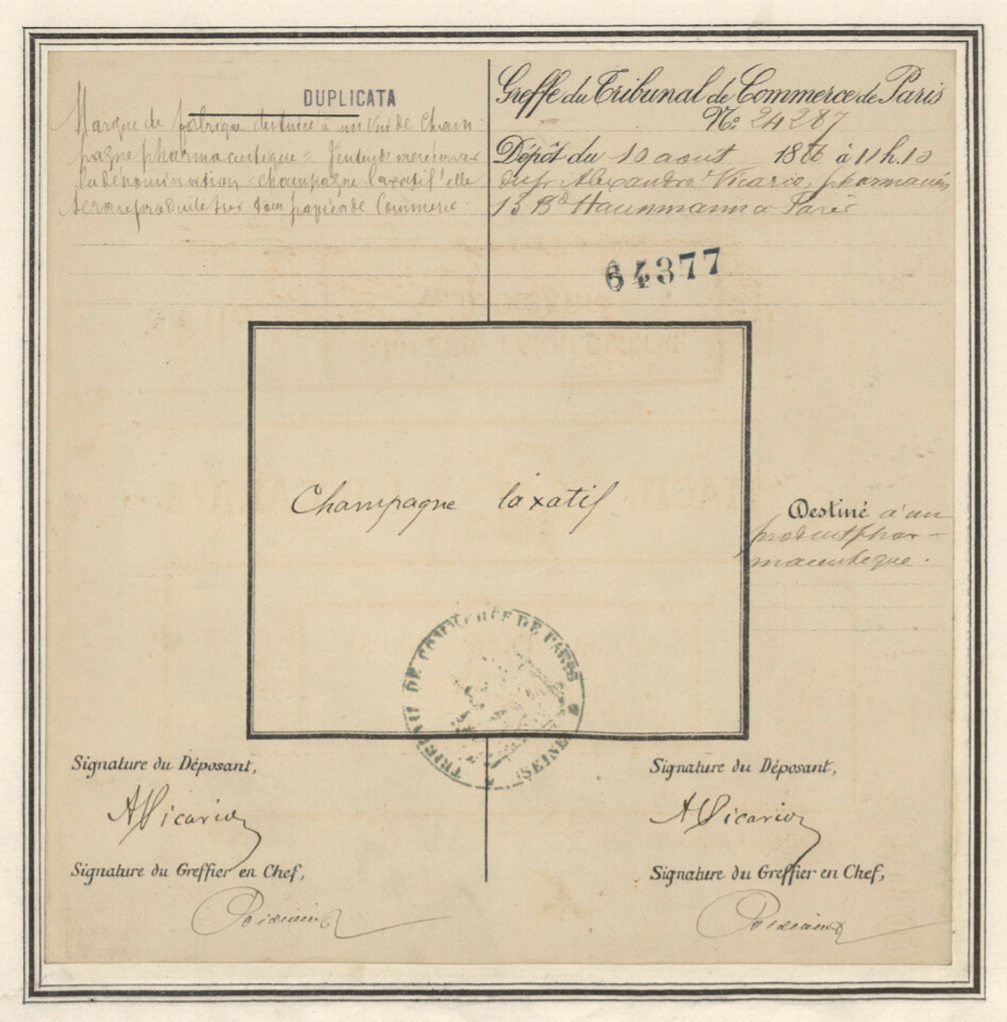 DUPLICATA
Marque de fabrique destinée à un Vin de Cham-
pagne pharmaceutique = J'entends me réserver
la dénomination "champagne laxatif" elle
sera reproduite sur tous papiers de Commerce.
Greffe du Tribunal de Commerce de Paris
No. 24287
Dépôt du 10 aout 18 à 11 h. 10
du Sr Alexandre Vicario, pharmacien
13 Bd Haussmann a Paris
64377
Champagne laxatif
Destiné à un
produit phar-
maceutique.
TRIBUNAL DE COMMERCE DE PARIS
(SEINE)
Signature du Déposant,
AVicario
Signature du Greffier en Chef,
Signature du Déposant,
AVicario
Signature du Greffier en Chef,